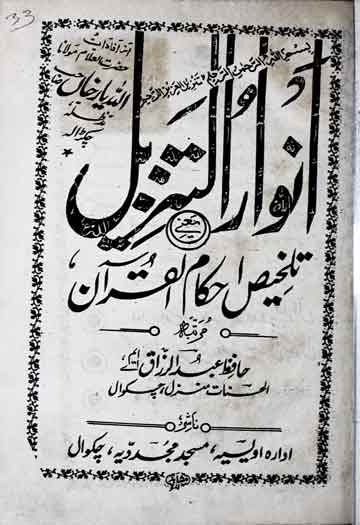 33
بسم اللہ الرحمٰن الرحیم ؕ تنزیل العزیز الرحیم
از افادات
حضرت العلام مولانا
اللہ یار خان صاحب
چکڑالہ
انوار التنزیل
یعنی
تلخیص احکام القرآن
مرتبہ
حافظ عبد الرزاق ایم اے
الحسنات منزل، چکوال
ناشر
ادارہ اویسیہ، مسجد مجددیہ، چکوال